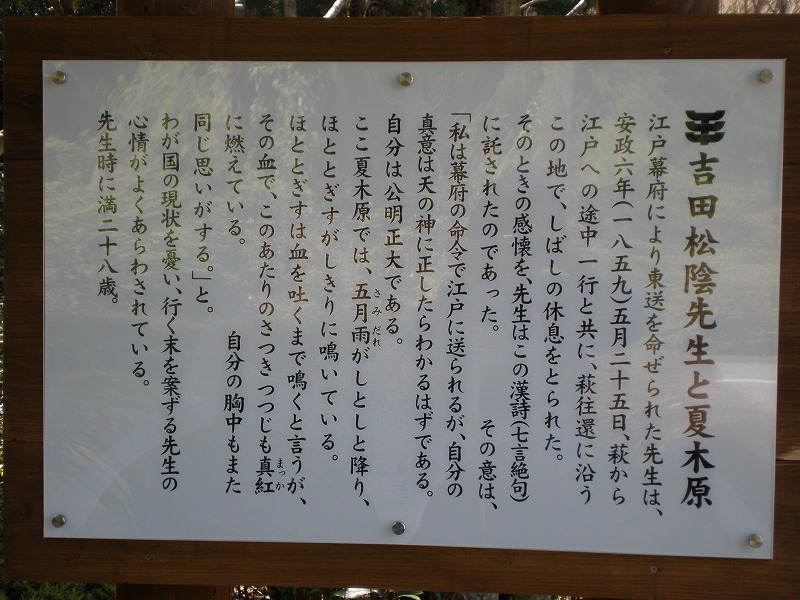 吉田松陰先生と夏木原
江戸幕府により東送を命ぜられた先生は、
安政六年(一八五九)五月二十五日、萩から
江戸への途中一行と共に、萩往還に沿う
この地で、しばしの休息をとられた。
そのときの感懐を、先生はこの漢詩(七言絶句)
に託されたのであった。 その意は、
「私は幕府の命令で江戸に送られるが、自分の
真意は天の神に正したらわかるはずである。
自分は公明正大である。
ここ夏木原では、五月雨がしとしと降り、
さみだれ
ほととぎすがしきりに鳴いている。
ほととぎすは血を吐くまで鳴くと言うが、
その血で、このあたりのさつきつつじも真紅
まっか
に燃えている。 自分の胸中もまた
同じ思いがする。」と。
わが国の現状を憂い、行く末を案ずる先生の
心情がよくあらわされている。
先生時に満二十八歳。